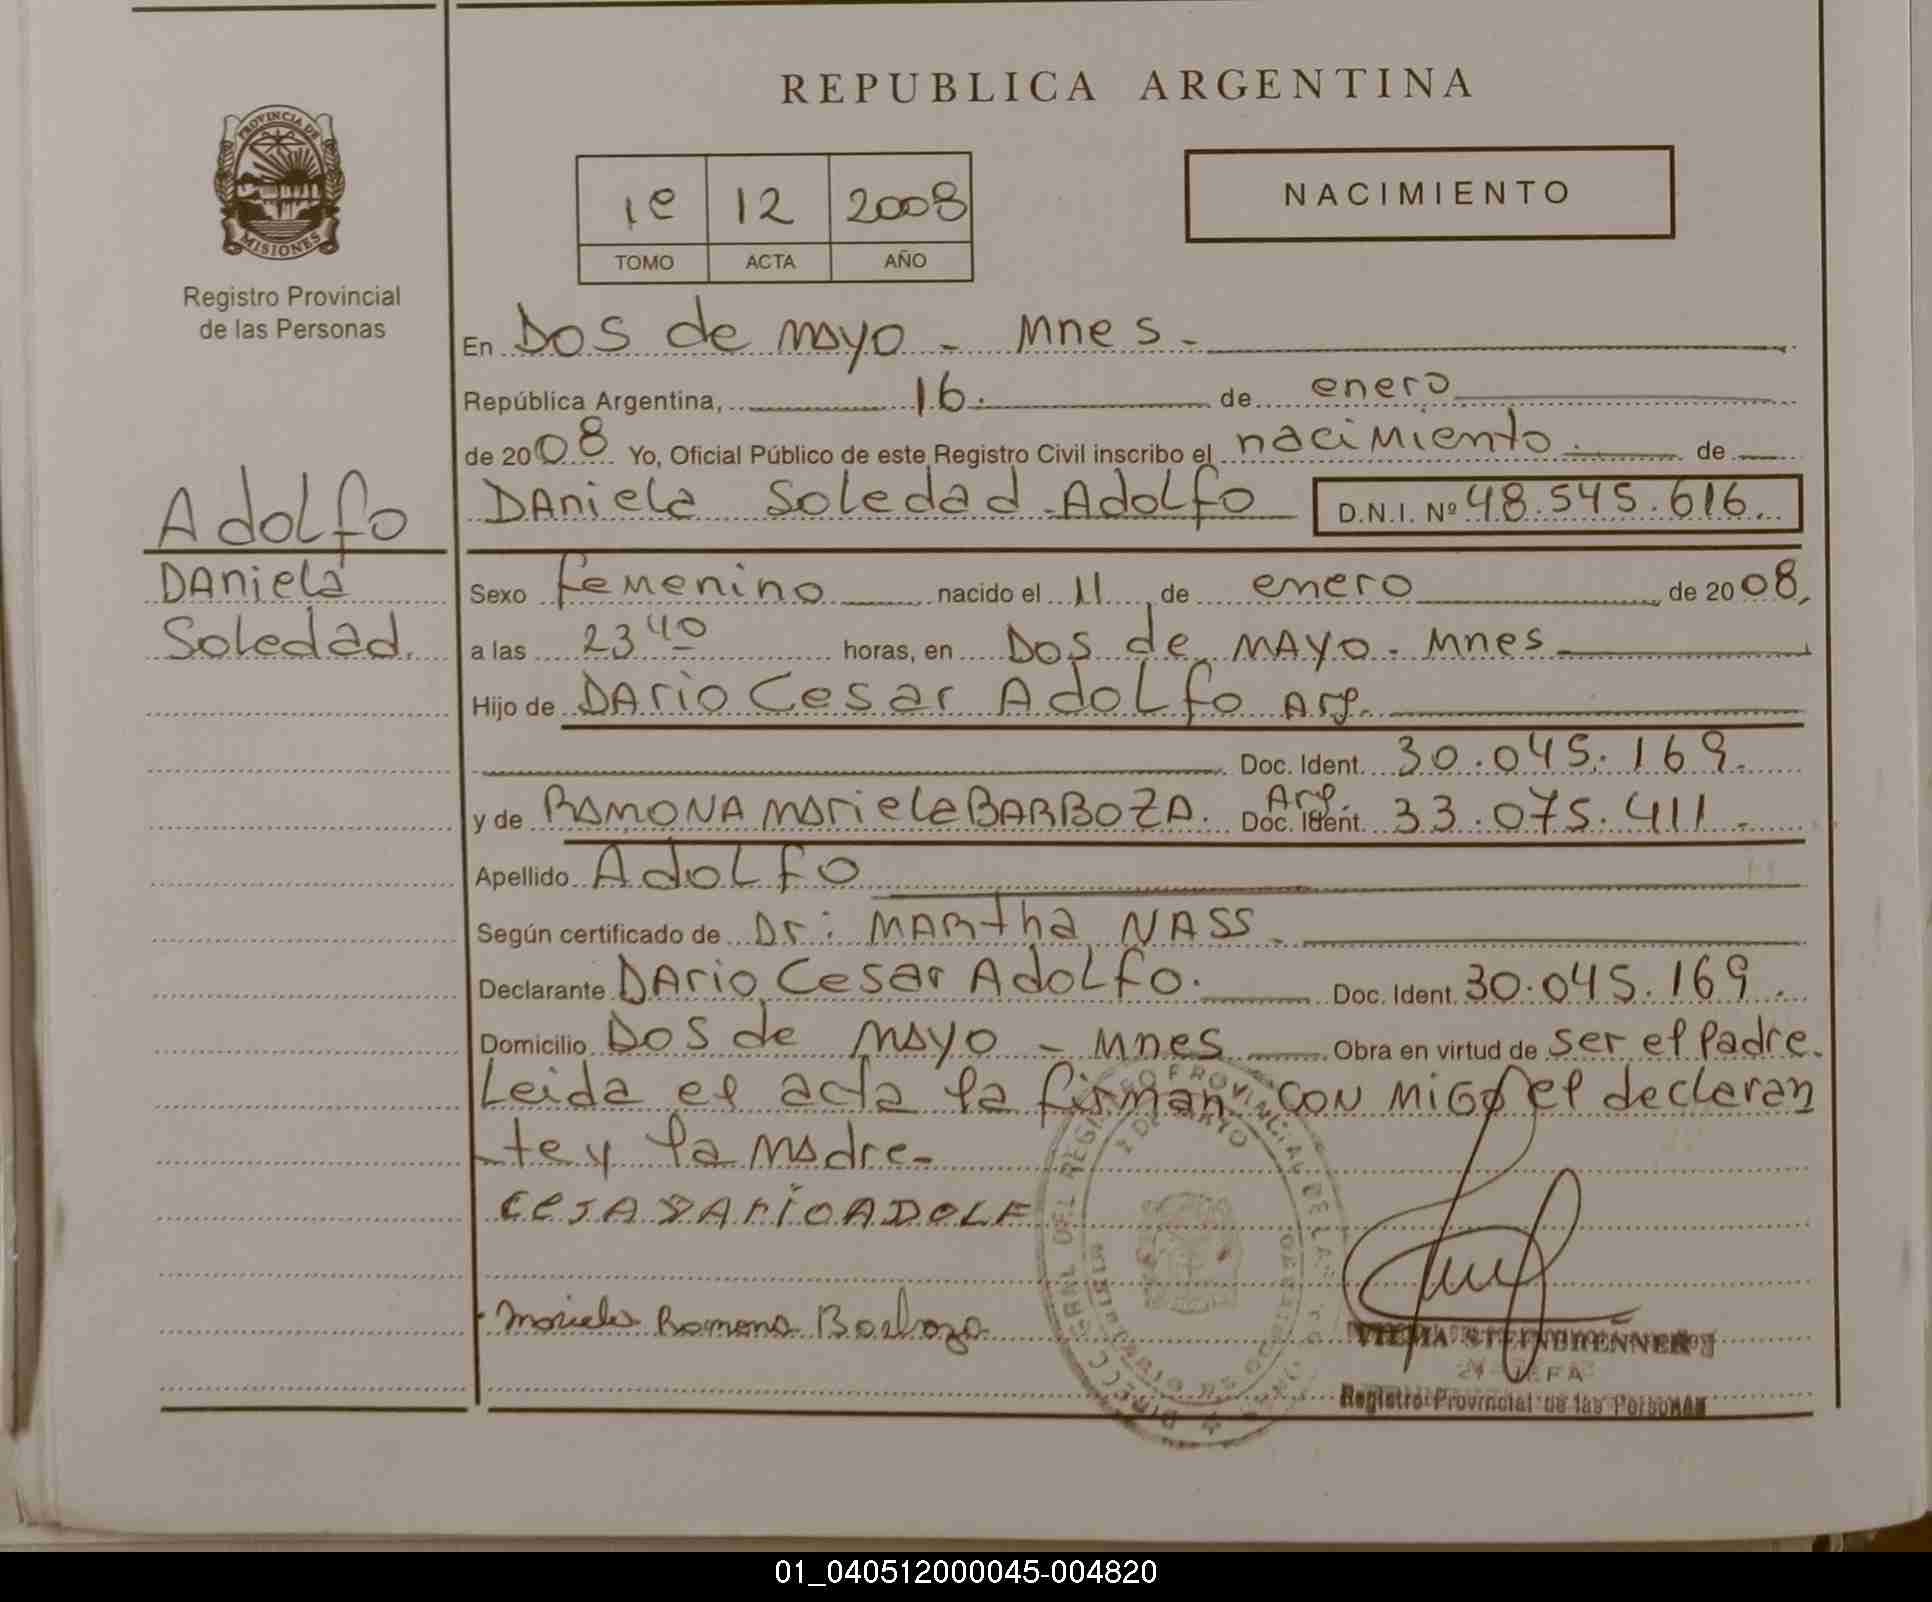 REPUBLICA ARGENTINA
PROVINCIA DE
MISIONES
Registro Provincial
de las Personas
1e 12 2008
TOMO ACTA AÑO
NACIMIENTO
En Dos de mayo - Mnes -
República Argentina, 16. de enero
de 2008 Yo, Oficial Público de este Registro Civil inscribo el nacimiento. de
Daniela Soledad Adolfo D.N.I. Nº 48.545.616.
Adolfo
Daniela
Soledad.
Sexo femenino nacido el 11 de enero de 2008,
a las 23 40 horas, en Dos de MAYO - Mnes
Hijo de DArio Cesar Adolfo Arg.
Doc. Ident. 30.045.169.
y de RAMONA MARiela BARBOZA. Arg. Doc. Ident. 33.075.411.-
Apellido Adolfo
Según certificado de Dr: MARtha NASS -
Declarante DArio Cesar Adolfo. Doc. Ident. 30.045.169.
Domicilio Dos de mayo - Mnes Obra en virtud de ser el Padre.
Leida el acta la firman con migo el declaran
te y la madre-
CeSA DAriO ADOLF
Mariela Ramona Barboza
JEFA
Registro Provincial de las Personas
01_040512000045-004820